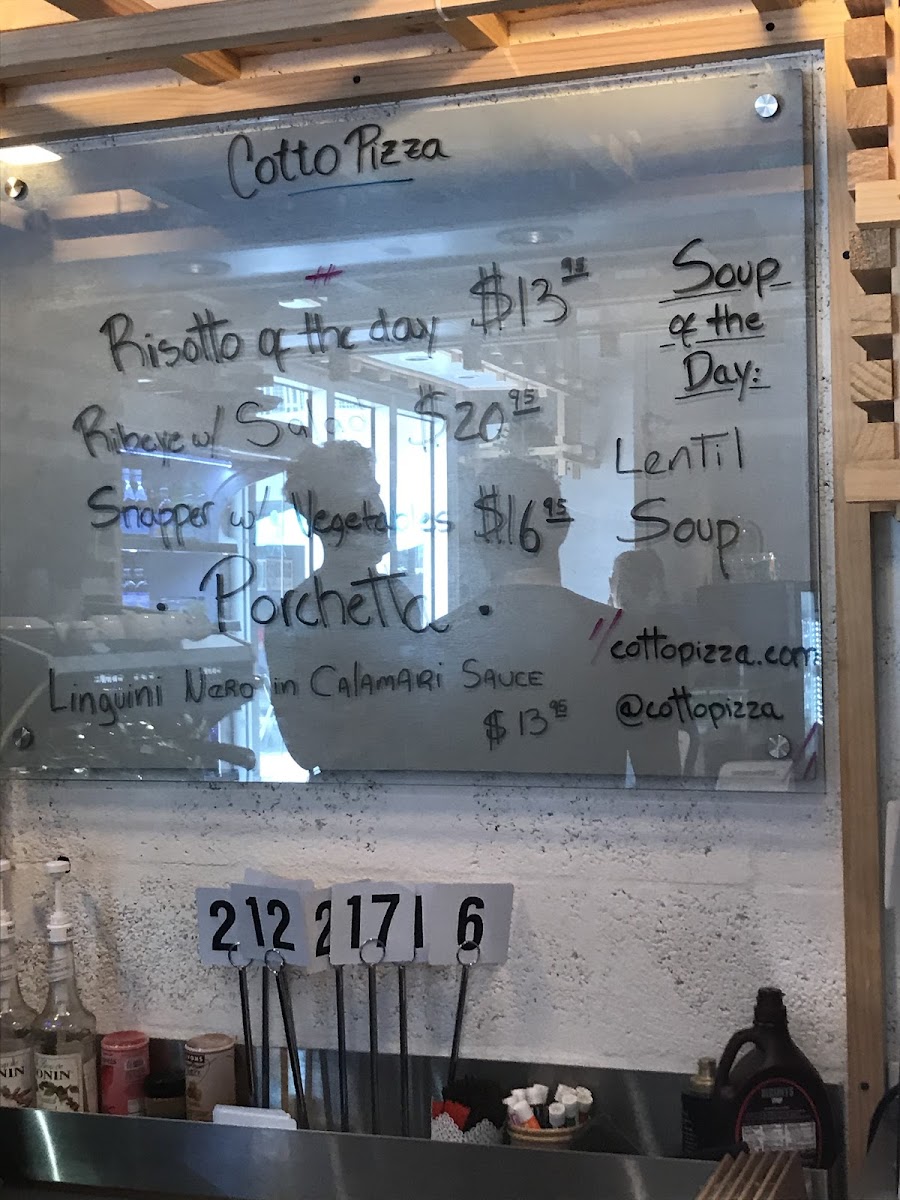 Cotto Pizza
Risotto of the day $13.95
Ribeye w/ Salad $20.95
Snapper w/ Vegetables $16.95
• Porchetta •
Linguini Nero in Calamari Sauce
$13.95
Soup
of the
Day:
Lentil
Soup
cottopizza.com
@cottopizza
2 12 2 17 1 6
NIN
ONIN